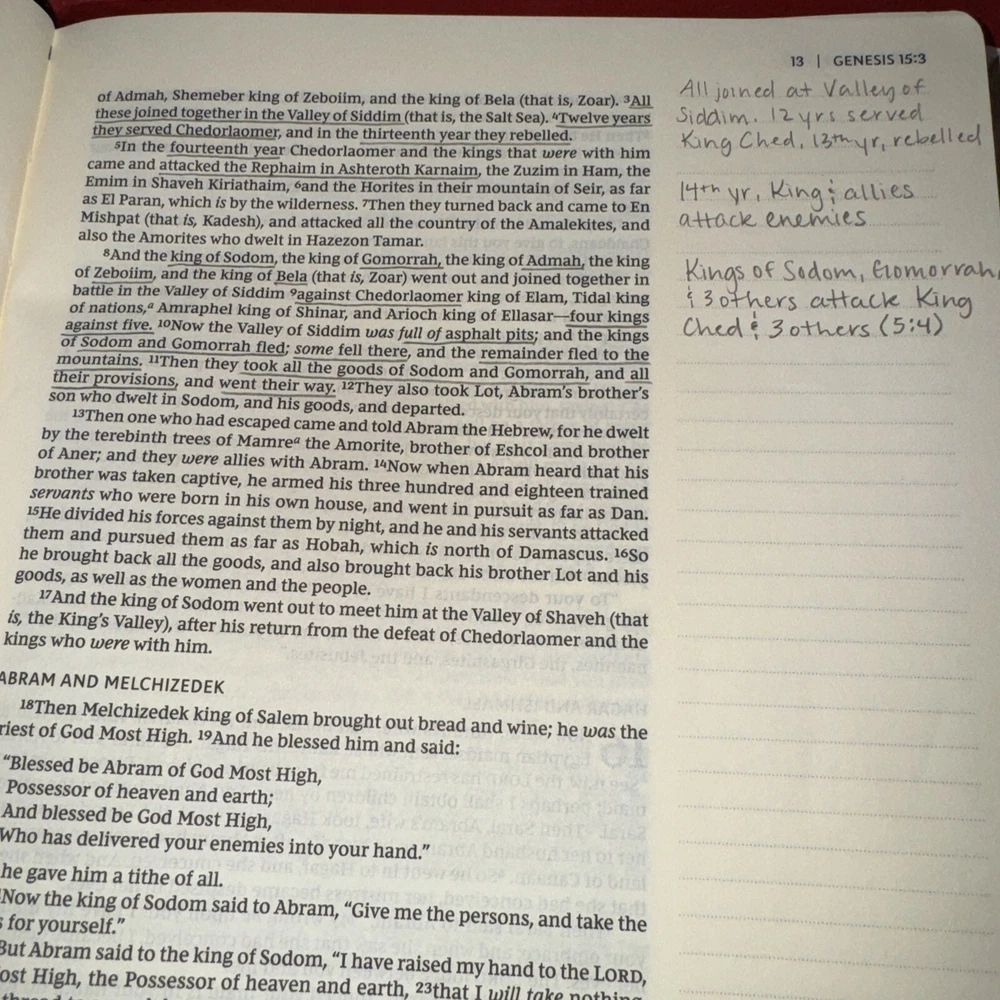 13 | GENESIS 15:3
of Admah, Shemeber king of Zeboiim, and the king of Bela (that is, Zoar). ³All
these joined together in the Valley of Siddim (that is, the Salt Sea). ⁴Twelve years
they served Chedorlaomer, and in the thirteenth year they rebelled.
⁵In the fourteenth year Chedorlaomer and the kings that were with him
came and attacked the Rephaim in Ashteroth Karnaim, the Zuzim in Ham, the
Emim in Shaveh Kiriathaim, ⁶and the Horites in their mountain of Seir, as far
as El Paran, which is by the wilderness. ⁷Then they turned back and came to En
Mishpat (that is, Kadesh), and attacked all the country of the Amalekites, and
also the Amorites who dwelt in Hazezon Tamar.
⁸And the king of Sodom, the king of Gomorrah, the king of Admah, the king
of Zeboiim, and the king of Bela (that is, Zoar) went out and joined together in
battle in the Valley of Siddim ⁹against Chedorlaomer king of Elam, Tidal king
of nations,ᵃ Amraphel king of Shinar, and Arioch king of Ellasar—four kings
against five. ¹⁰Now the Valley of Siddim was full of asphalt pits; and the kings
of Sodom and Gomorrah fled; some fell there, and the remainder fled to the
mountains. ¹¹Then they took all the goods of Sodom and Gomorrah, and all
their provisions, and went their way. ¹²They also took Lot, Abram's brother's
son who dwelt in Sodom, and his goods, and departed.
¹³Then one who had escaped came and told Abram the Hebrew, for he dwelt
by the terebinth trees of Mamreᵃ the Amorite, brother of Eshcol and brother
of Aner; and they were allies with Abram. ¹⁴Now when Abram heard that his
brother was taken captive, he armed his three hundred and eighteen trained
servants who were born in his own house, and went in pursuit as far as Dan.
¹⁵He divided his forces against them by night, and he and his servants attacked
them and pursued them as far as Hobah, which is north of Damascus. ¹⁶So
he brought back all the goods, and also brought back his brother Lot and his
goods, as well as the women and the people.
¹⁷And the king of Sodom went out to meet him at the Valley of Shaveh (that
is, the King's Valley), after his return from the defeat of Chedorlaomer and the
kings who were with him.
ABRAM AND MELCHIZEDEK
¹⁸Then Melchizedek king of Salem brought out bread and wine; he was the
riest of God Most High. ¹⁹And he blessed him and said:
"Blessed be Abram of God Most High,
Possessor of heaven and earth;
And blessed be God Most High,
Who has delivered your enemies into your hand."
he gave him a tithe of all.
Now the king of Sodom said to Abram, "Give me the persons, and take the
s for yourself."
But Abram said to the king of Sodom, "I have raised my hand to the LORD,
ost High, the Possessor of heaven and earth, ²³that I will take nothing,
All joined at Valley of
Siddim. 12 yrs served
King Ched, 13th yr, rebelled
14th yr, King & allies
attack enemies
Kings of Sodom, Gomorrah,
& 3 others attack King
Ched & 3 others (5:4)